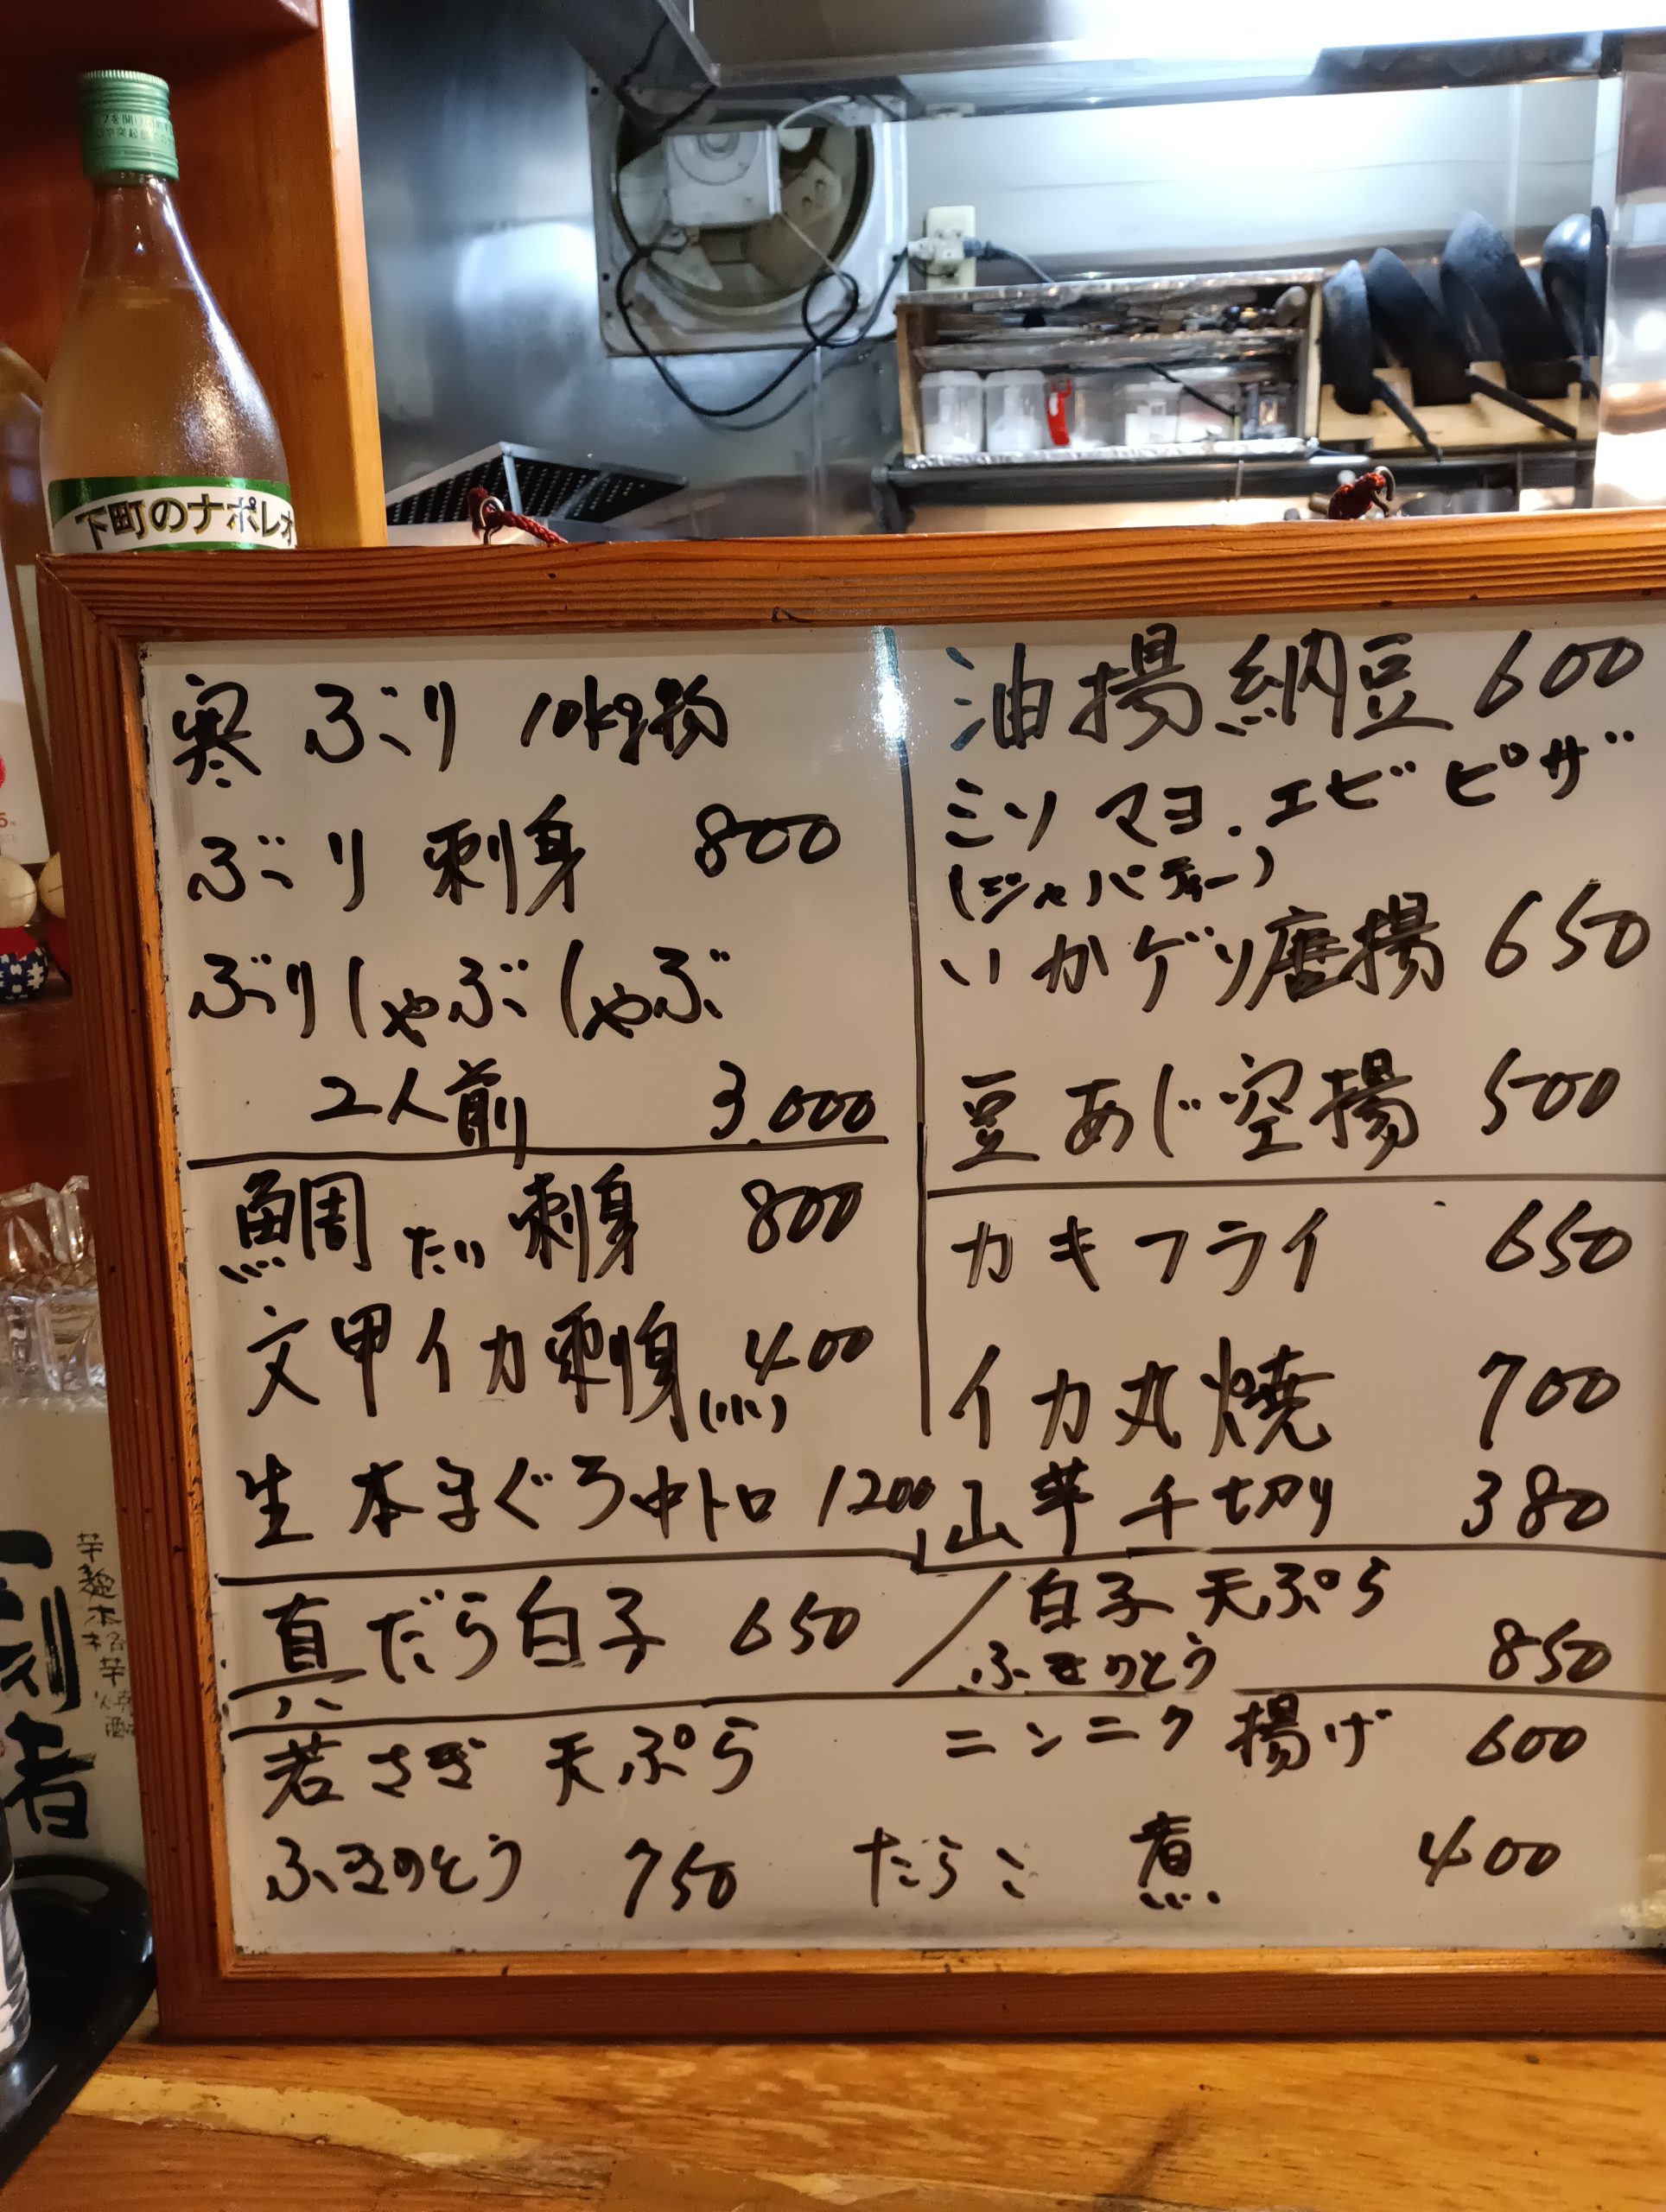 下町のナポレオ
寒ぶり 10kg物
ぶり 刺身 800
ぶりしゃぶしゃぶ
2人前 3.000
鯛 たい 刺身 800
文甲イカ刺身 400
生 本まぐろ中トロ 1200
真だら白子 650
若さぎ 天ぷら
ふきのとう 750
油揚納豆 600
ミソマヨ.エビピザ
いかゲソ唐揚 650
豆あじ空揚 500
カキフライ 650
イカ丸焼 700
山芋千切り 380
白子 天ぷら
ふきのとう 850
ニンニク揚げ 600
たらこ 煮 400
芋麹
本格芋
刻者